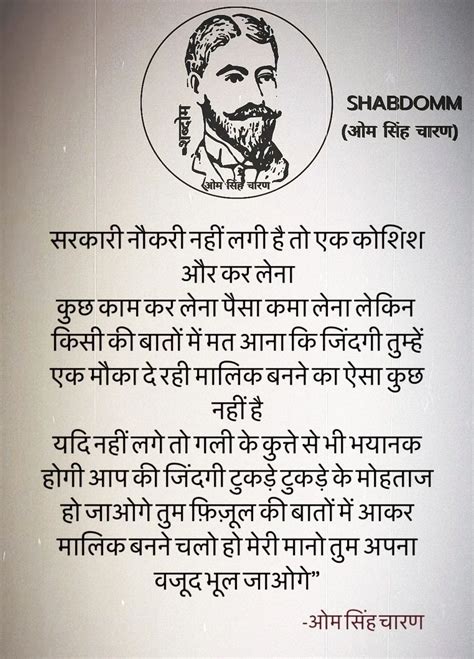 SHABDOMM
(ओम सिंह चारण)
शब्दोम
ओम सिंह चारण
सरकारी नौकरी नहीं लगी है तो एक कोशिश
और कर लेना
कुछ काम कर लेना पैसा कमा लेना लेकिन
किसी की बातों में मत आना कि जिंदगी तुम्हें
एक मौका दे रही मालिक बनने का ऐसा कुछ
नहीं है
यदि नहीं लगे तो गली के कुत्ते से भी भयानक
होगी आप की जिंदगी टुकड़े टुकड़े के मोहताज
हो जाओगे तुम फ़िज़ूल की बातों में आकर
मालिक बनने चलो हो मेरी मानो तुम अपना
वजूद भूल जाओगे”
-ओम सिंह चारण